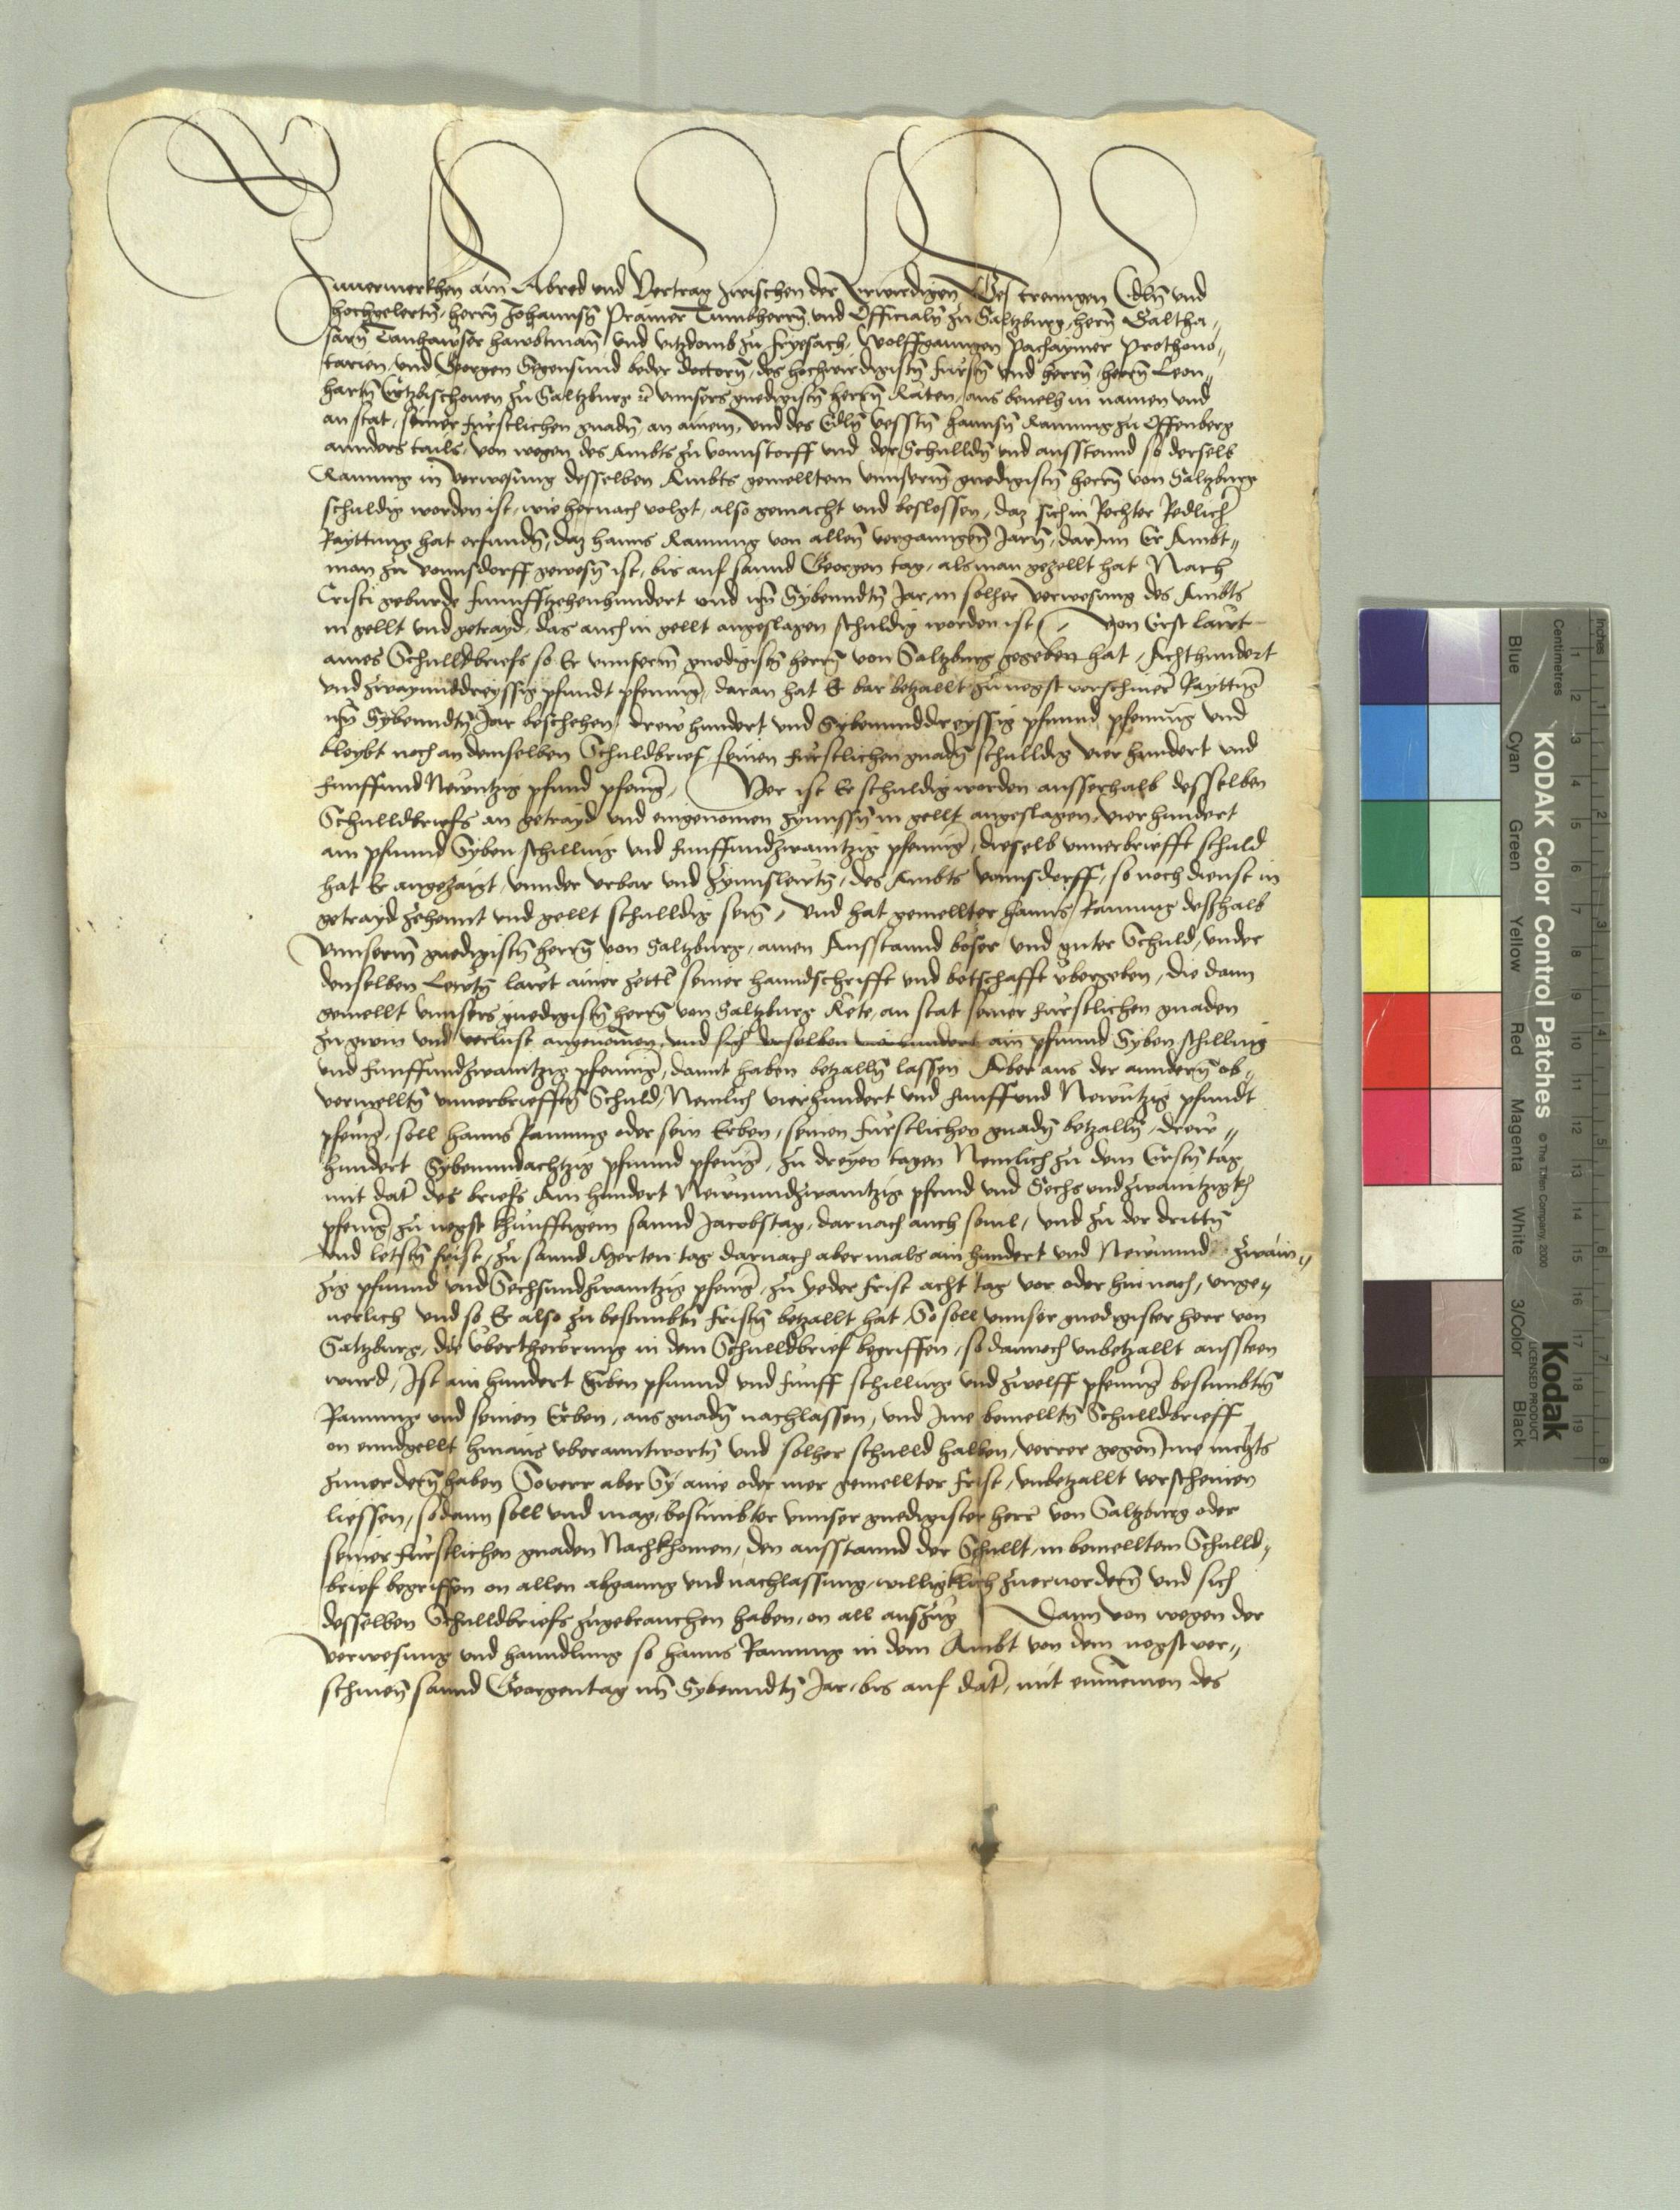 Zuuermerkhen ain Abred vnd Vertrag zwischen der Erwirdigen Gestrenngen Edln vnd
hochgelertn, herrn Johannsn Prämer Tumbherrn vnd Official zu Saltzburg, herrn Baltha„
sarn Tanhawser hawbtman vnd vitzdomb zu Fryesach, Wolffganngen Pachaymer Prothono„
tarien, vnd Georgen Sigensund beder doctorn, des hochwirdigistn Fürstn vnd herrn, herrn Leon„
hartn Ertzbischouen zu Saltzburg etc vnnsers gnedigistn herrn Räten, aus beuelh in namen vnd
an stat, seiner fürstlichen gnadn, an ainem, Vnd des Edln vesstn hannsn Ramung zu Offenberg
annders tails, von wegen des Ambts zu vonnstorff vnd der Schulldn vnd ausstennd so derselb
Ramung in verwesung desselben Ambts gemelltem vnnserm gnedigistn herrn von Saltzburg
schuldig worden ist, wie hernach volgt, also gemacht vnd beslossen, daz sich in Rechter Redlicher
Rayttung hat erfundn, daz hanns Ramung von allen verganngen Jarn, darInn Er Ambt„
man zu vonnsdorff gewesn ist, bis auf sannd Georgen tag, als man gezellt hat Nach
Cristi geburde funffzehenhundert vnd im Sybenndtn Jar, in solher verwesung des Ambts
in gellt vnd getrayd, das auch in gellt angeslagen schuldig worden ist, Von Erst lawt
aines Schulldbriefs so Er vnnserm gnedigistn herrn von Saltzburg gegeben hat, Achthundert
vnd zwayunddreyssig pfundt pfening, daran hat Er bar betzallt zu negst verschiner Rayttung
im Sybenndtn Jar beschehen, drewhundert vnd Sybenunddreyssig pfund pfening vnd
bleybt noch an demselben Schuldbrief seinen fürstlichen gnadn schulldig vierhundert vnd
funffundNewntzig pfund pfening, Mer ist Er schuldig worden ausserhalb desselben
Schulldbriefs an getrayd vnd eingenomen zynnssn in gellt angeslagen, vierhundert
ain pfunnd Syben schilling vnd funffundzwaintzig pfening, dieselb vnuerbriefft schuld
hat Er angezaigt, vnnder vrbar vnd zynnslewtn, des Ambts vonnsdorff, so noch dienst in
getrayd zehennt vnd gellt schulldig sein, Vnd hat gemellter hanns Ramung deshalb
vnnserm gnedigistn herrn von Saltzburg, ainen Ausstannd böser vnd guter Schuld, vnder
denselben Lewtn lawt ainer zettl seiner hanndschrifft vnd betschafft vbergeben, die dann
gemellt vnnsers gnedigistn herrn von Saltzburg Rete, an stat seiner fürstlichen gnaden
zu gwin vnd verlust angenomen, vnd sich derselben vierhundert ain pfunnd Syben schilling
vnd funffundzwaintzig pfening, damit haben betzalln lassen Aber aus der anndern ob„
vermelltn vnuerbrieffen Schuld, Nemlich vierhundert vnd funffund Newntzig pfundt
pfening, soll hanns Ramung oder sein Erben, seinen fürstlichen gnadn betzalln, drew„
hundert Sybenundachtzig pfunnd pfening, zu dreyen tagen Nemlich zu dem Erstn tag
mit dato des briefs Ain hundert Newnundzwaintzig pfund vnd Sechsundzwaintzigk
pfening, zu negst khunfftigem sannd Jacobstag, darnach auch souil, vnd zu der drittn
vnd letstn frist, zu sannd Merten tag darnach abermals ain hundert vnd Newnund zwain„
zig pfunnd vnd Sechsundzwaintzig pfening, zu yeder frist acht tag vor oder hinnach, vnge„
uerlich vnd so Er also zu bestimbtn fristn betzallt hat, So soll vnnser gnedigister herr von
Saltzburg, die vbertherwrung in dem Schulldbrief begriffen, so dannoch vnbetzallt aussteen
wurd, Ist ain hundert Siben pfunnd vnd funff schilling vnd zwelff pfening bestimbtn
Ramung vnd seinen Erben, aus gnadn nachlassen, vnd Ime bemelltn Schulldbrieff
on enndgellt hinaus vberanntwortn vnd solher schulld halben, verrer gegen Ime nichts
zuuordern haben Souerr aber Sy aine oder mer gemellter frist, vnbetzallt verscheinen
liessen, sodann soll vnd mag, bestimbter vnnser gnedigister herr von Saltzburg oder
seiner fürstlichen gnaden Nachkhomen, den ausstannd der Schullt, in bemelltem Schulld„
brief begriffen on allen abganng vnd nachlassung, willigklich zueruordern vnd sich
desselben Schulldbriefs zugebrauchen haben, on all auszug Dann von wegen der
verwesung vnd hanndlung so hanns Ramung in dem Ambt von dem negst ver„
schinen sannd Georgentag im Sybenndtn Jar, bis auf dato, mit einnemen des
KODAK Color Control Patches
© The Tiffen Company, 2000
Kodak
LICENSED PRODUCT
Inches
Centimetres
Blue Cyan Green Yellow Red Magenta White 3/Color Black